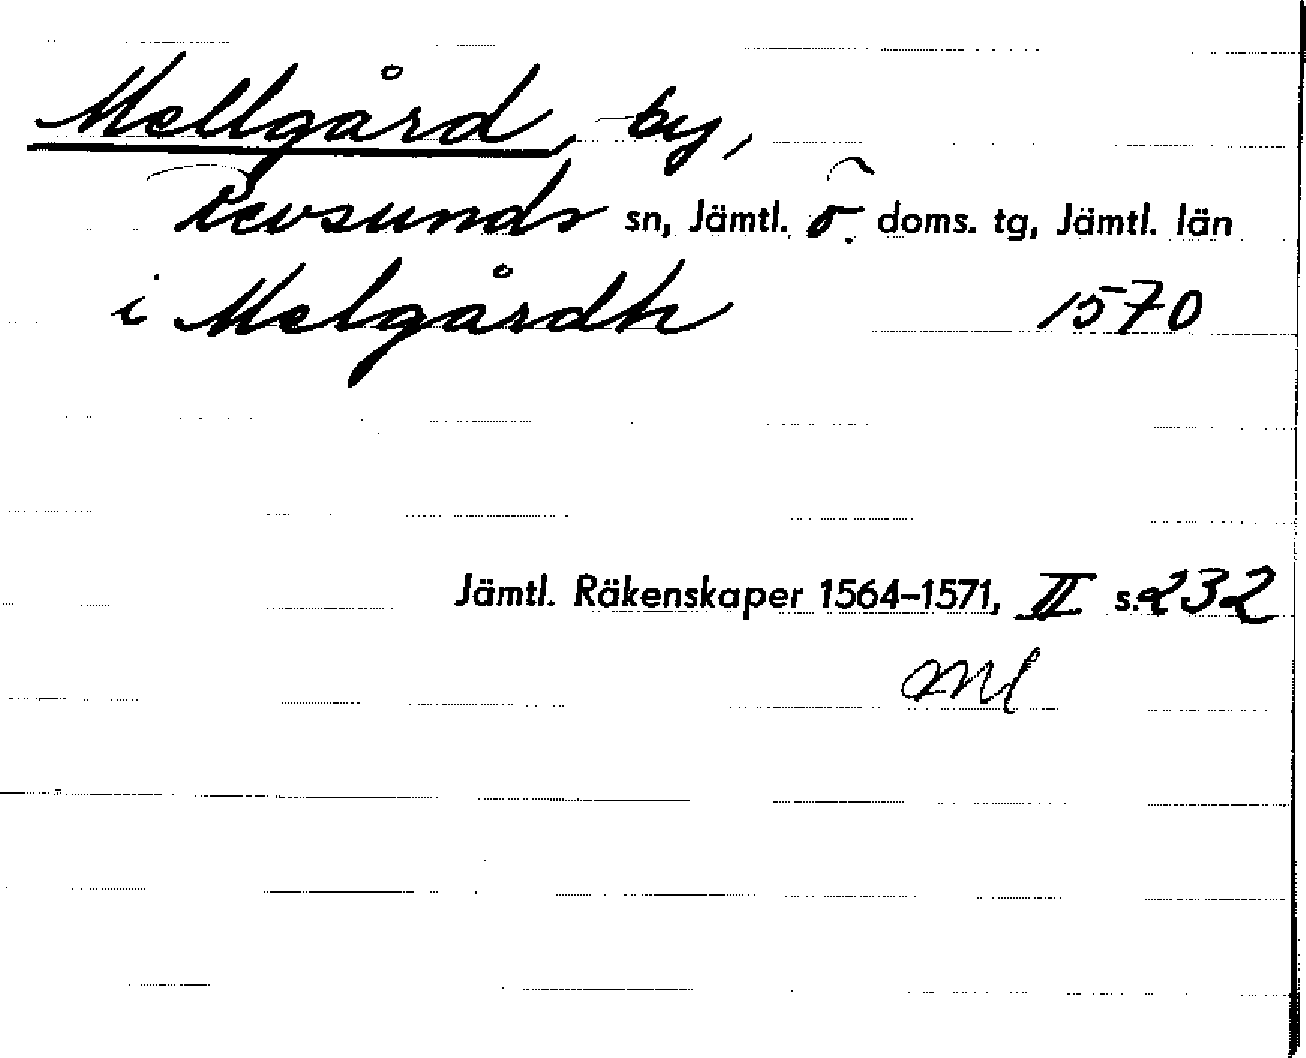 Mellgård, by,
Revsunds sn, Jämtl. ö. doms. tg, Jämtl. län
i Melgårdh 1570
Jämtl. Räkenskaper 1564-1571, II s. 232